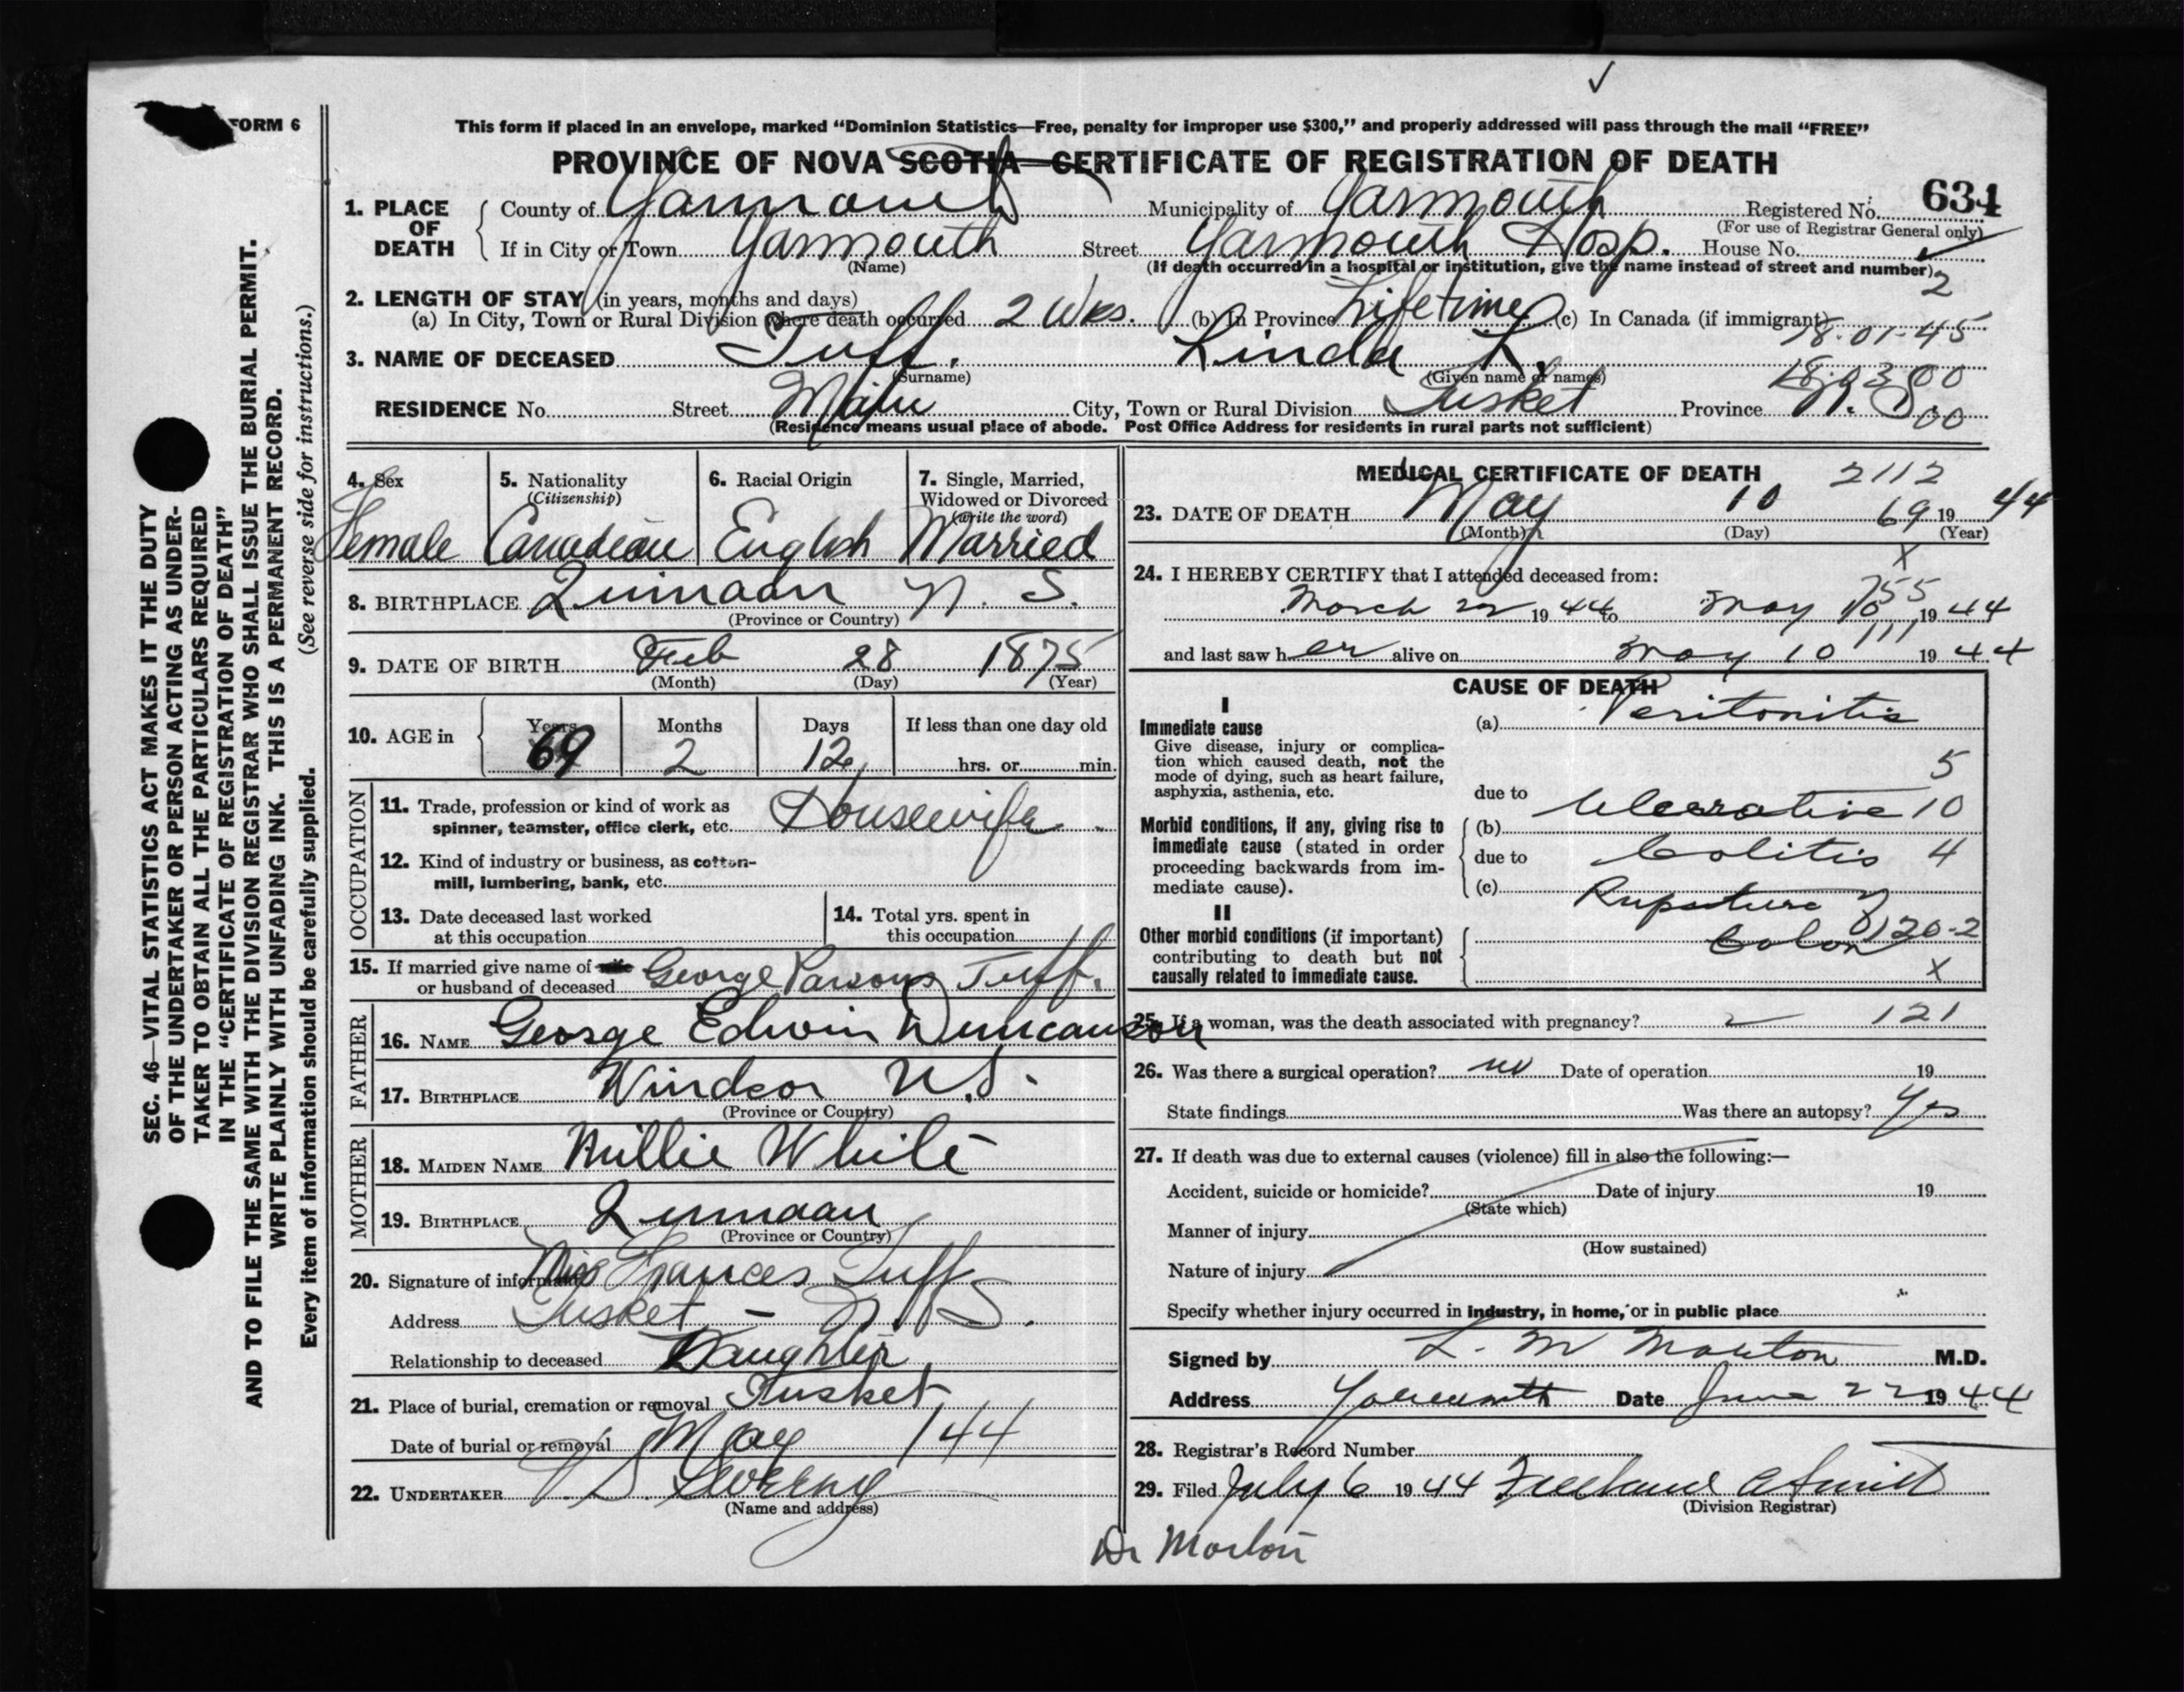 ✓
FORM 6
This form if placed in an envelope, marked "Dominion Statistics—Free, penalty for improper use $300," and properly addressed will pass through the mail "FREE"
PROVINCE OF NOVA SCOTIA—CERTIFICATE OF REGISTRATION OF DEATH
634
1. PLACE OF DEATH County of Yarmouth Municipality of Yarmouth Registered No.
(For use of Registrar General only)
If in City or Town Yarmouth Street Yarmouth Hosp. House No. ✓
(Name) (If death occurred in a hospital or institution, give the name instead of street and number)
2
2. LENGTH OF STAY (in years, months and days)
(a) In City, Town or Rural Division where death occurred 2 Wks. (b) In Province Lifetime (c) In Canada (if immigrant)
18-01-45
3. NAME OF DECEASED Tuff, Linda L.
(Surname) (Given name or names)
RESIDENCE No. Street Main City, Town or Rural Division Tusket Province N. S.
00
(Residence means usual place of abode. Post Office Address for residents in rural parts not sufficient)
4. Sex Female
5. Nationality (Citizenship) Canadian
6. Racial Origin English
7. Single, Married, Widowed or Divorced (write the word) Married
8. BIRTHPLACE Quinaan N. S.
(Province or Country)
9. DATE OF BIRTH Feb 28 1875
(Month) (Day) (Year)
10. AGE in Years 69 Months 2 Days 12 If less than one day old
hrs. or min.
OCCUPATION
11. Trade, profession or kind of work as
spinner, teamster, office clerk, etc. Housewife
12. Kind of industry or business, as cotton-
mill, lumbering, bank, etc.
13. Date deceased last worked
at this occupation
14. Total yrs. spent in
this occupation
15. If married give name of wife
or husband of deceased George Parsons Tuff.
FATHER
16. NAME George Edwin Duncanson
17. BIRTHPLACE Windsor N.S.
(Province or Country)
MOTHER
18. MAIDEN NAME Millie White
19. BIRTHPLACE Quinaan
(Province or Country)
20. Signature of informant Miss Frances Tuff
Address Tusket - N. S.
Relationship to deceased Daughter
21. Place of burial, cremation or removal Tusket
Date of burial or removal May /44
22. UNDERTAKER V. S. Sweeny
(Name and address)
MEDICAL CERTIFICATE OF DEATH 2112
23. DATE OF DEATH May 10 69 19 44
(Month) (Day) (Year)
X
24. I HEREBY CERTIFY that I attended deceased from:
755
March 22 19 44 to May 10 19 44
111
and last saw h er alive on May 10 19 44
CAUSE OF DEATH
I
Immediate cause
Give disease, injury or complica-
tion which caused death, not the
mode of dying, such as heart failure,
asphyxia, asthenia, etc.
(a) Peritonitis
5
due to
Morbid conditions, if any, giving rise to
immediate cause (stated in order
proceeding backwards from im-
mediate cause).
(b) Ulcerative 10
due to Colitis 4
(c) Rupture of
II
Other morbid conditions (if important)
contributing to death but not
causally related to immediate cause.
Colon 120-2
X
25. If a woman, was the death associated with pregnancy? 121
26. Was there a surgical operation? no Date of operation 19
State findings Was there an autopsy? Yes
27. If death was due to external causes (violence) fill in also the following:—
Accident, suicide or homicide? Date of injury 19
(State which)
Manner of injury
(How sustained)
Nature of injury
Specify whether injury occurred in industry, in home, or in public place
Signed by L. M Morton M.D.
Address Yarmouth Date June 22 19 44
28. Registrar's Record Number
29. Filed July 6 19 44 Freeland A Smith
(Division Registrar)
Dr Morton
SEC. 46—VITAL STATISTICS ACT MAKES IT THE DUTY
OF THE UNDERTAKER OR PERSON ACTING AS UNDER-
TAKER TO OBTAIN ALL THE PARTICULARS REQUIRED
IN THE "CERTIFICATE OF REGISTRATION OF DEATH"
AND TO FILE THE SAME WITH THE DIVISION REGISTRAR WHO SHALL ISSUE THE BURIAL PERMIT.
WRITE PLAINLY WITH UNFADING INK. THIS IS A PERMANENT RECORD.
Every item of information should be carefully supplied. (See reverse side for instructions.)